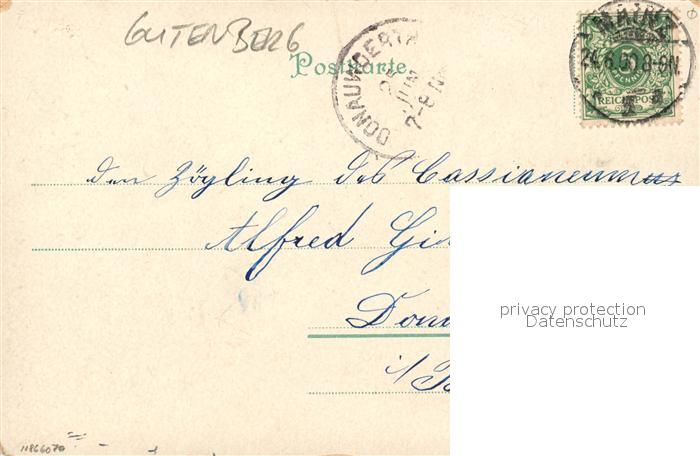 GUTENBERG
Postkarte.
DONAUWOERTH
JUN
7-8 N
MAINZ
24.6.00.8-9N.
5
PFENNIG
REICHSPOST
den Zögling des Cassianeums
Alfred Gi
Don
i/
privacy protection
Datenschutz
11866070